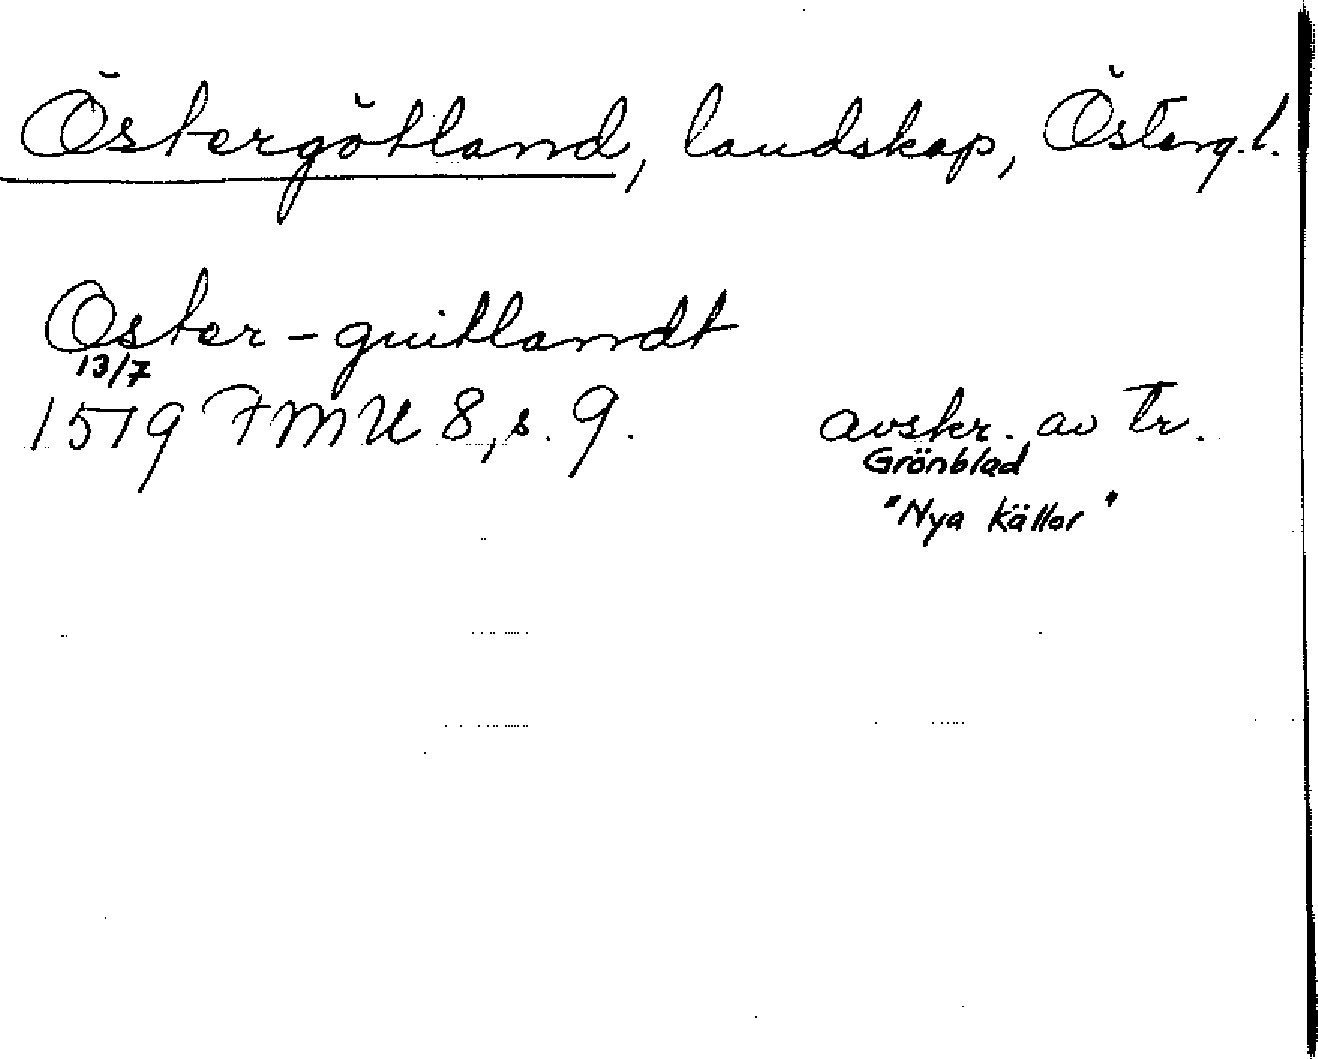 Östergötland, landskap, Österg. l.
Oster-guitlandt
13/7
1519 FMU 8, s. 9. avskr. av Tr.
Grönblad
"Nya Källor"